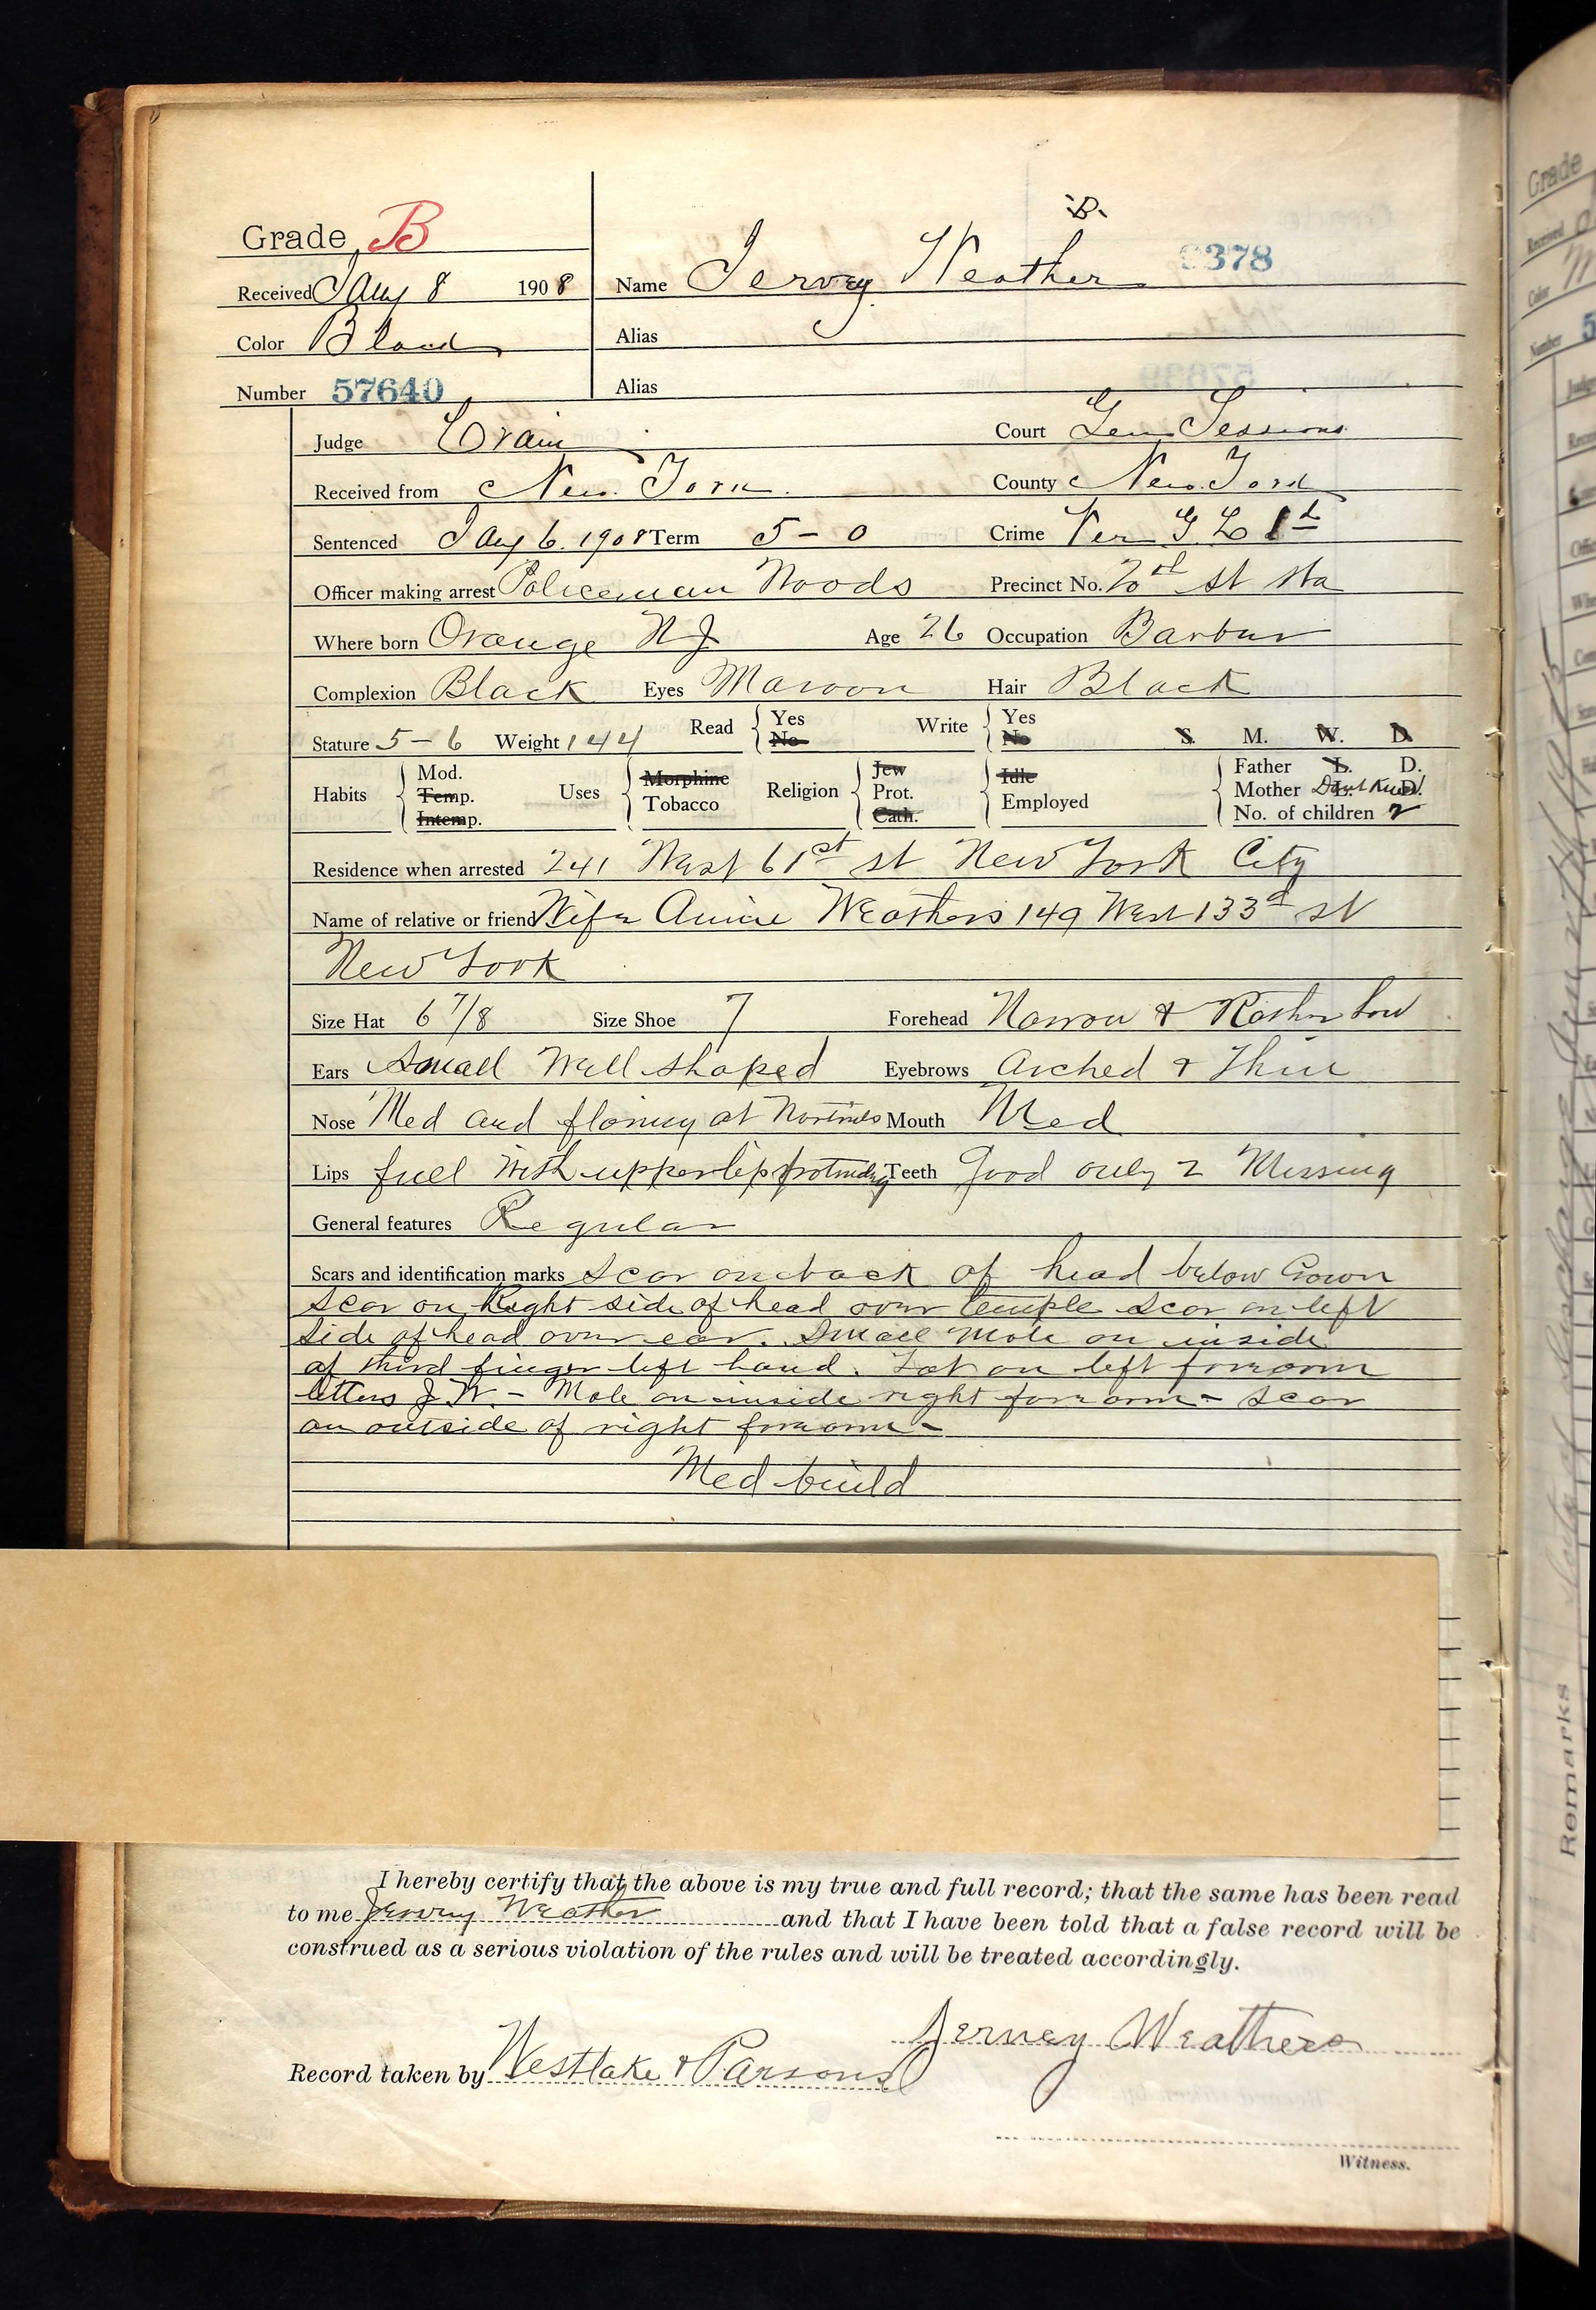 B.
Grade B
9378
Received Jany 8 1908 Name Jervey Weather
Color Black Alias
Number 57640 Alias
Judge Crain Court Gen Sessions
Received from New York County New York
Sentenced Jany 6. 1908 Term 5 - 0 Crime G L 1st
Officer making arrest Policeman Woods Precinct No. st Sta
Where born Orange N J Age 26 Occupation Barbur
Complexion Black Eyes Maroon Hair Black
Stature 5 - 6 Weight 144 Read Yes No Write Yes No S. M. W. D.
Habits Mod. Temp. Intemp. Uses Morphine Tobacco Religion Jew Prot. Cath. Idle Employed Father L. D. Mother L. D. Dont Know No. of children 2
Residence when arrested 241 West 61st st New York City
Name of relative or friend Wife Annie Weathers 149 West 133d st
New York
Size Hat 6 7/8 Size Shoe 7 Forehead Narrow & Rather Low
Ears Small Well shaped Eyebrows Arched & Thin
Nose Med and flaring at Nostrils Mouth Med
Lips full With upper lip protruding Teeth Good only 2 Missing
General features Regular
Scars and identification marks Scar on back of head below Crown
Scar on Right side of head over temple Scar on left
Side of head over ear. Small Mole on inside
of third finger left hand. Tat on left forearm
letters J. W. - Mole on inside right forearm - Scar
on outside of right forearm -
Med build
I hereby certify that the above is my true and full record; that the same has been read
to me Jervey Weather and that I have been told that a false record will be
construed as a serious violation of the rules and will be treated accordingly.
Jervey Weathers
Record taken by Westlake & Parsons
Witness.
Grade
Received
Color
Number 5
Remarks